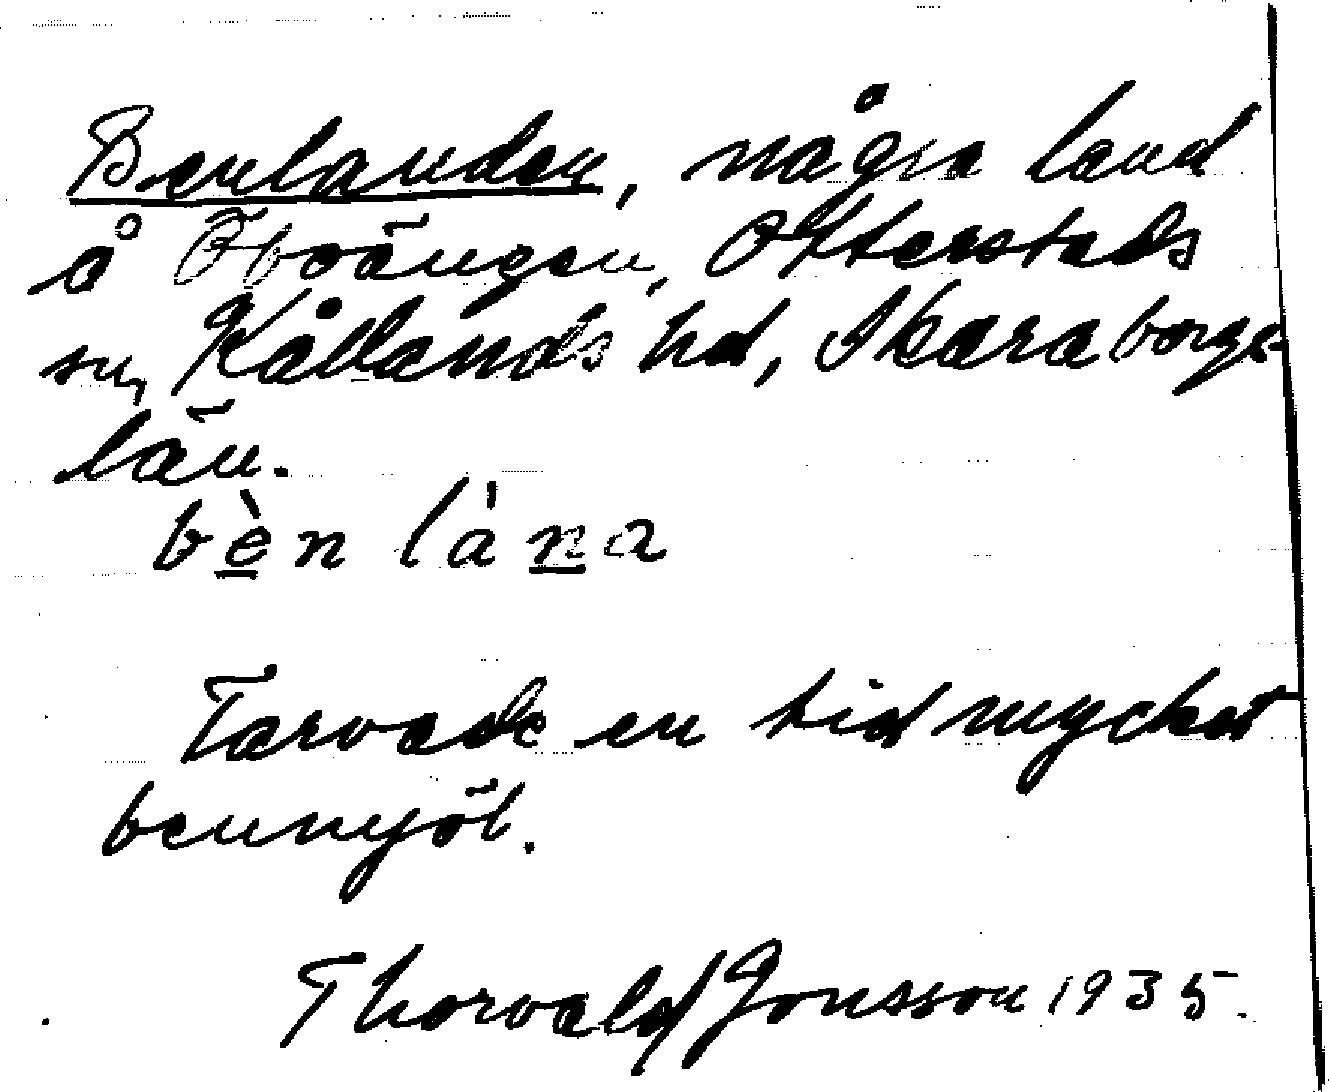 Benlanden, några land
å Öboängen, Otterstads
sn, Kållands hd, Skaraborgs
län.
bèn làna
Tarvade en tid mycket
benmjöl.
Thorvald Jonsson 1935.